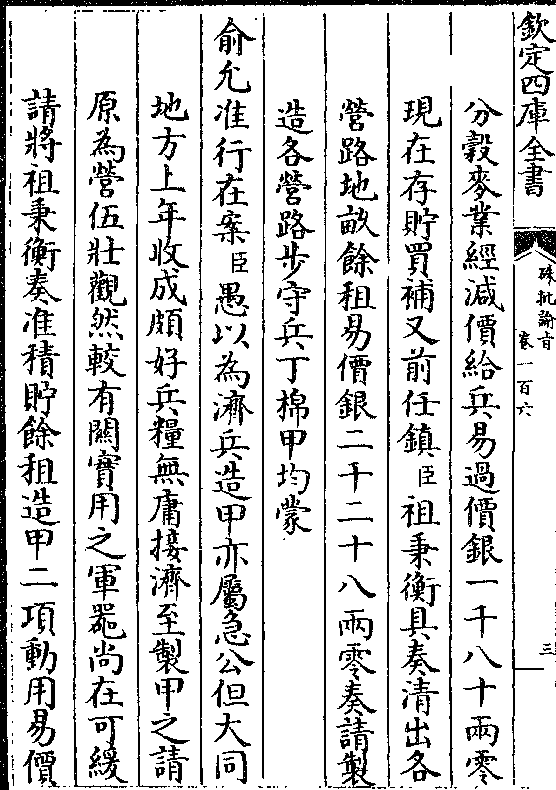 欽定四庫全書
硃批諭旨
卷一百六
三
分穀麥業經減價給兵易過價銀一千八十兩零
現在存貯買補又前任鎮臣祖秉衡具奏清出各
營路地畝餘租易價銀二千二十八兩零奏請製
造各營路步守兵丁棉甲均蒙
俞允准行在案臣愚以為濟兵造甲亦屬急公但大同
地方上年收成頗好兵糧無庸接濟至製甲之請
原為營伍壯觀然較有關實用之軍器尚在可緩
請將祖秉衡奏准積貯餘租造甲二項動用易價